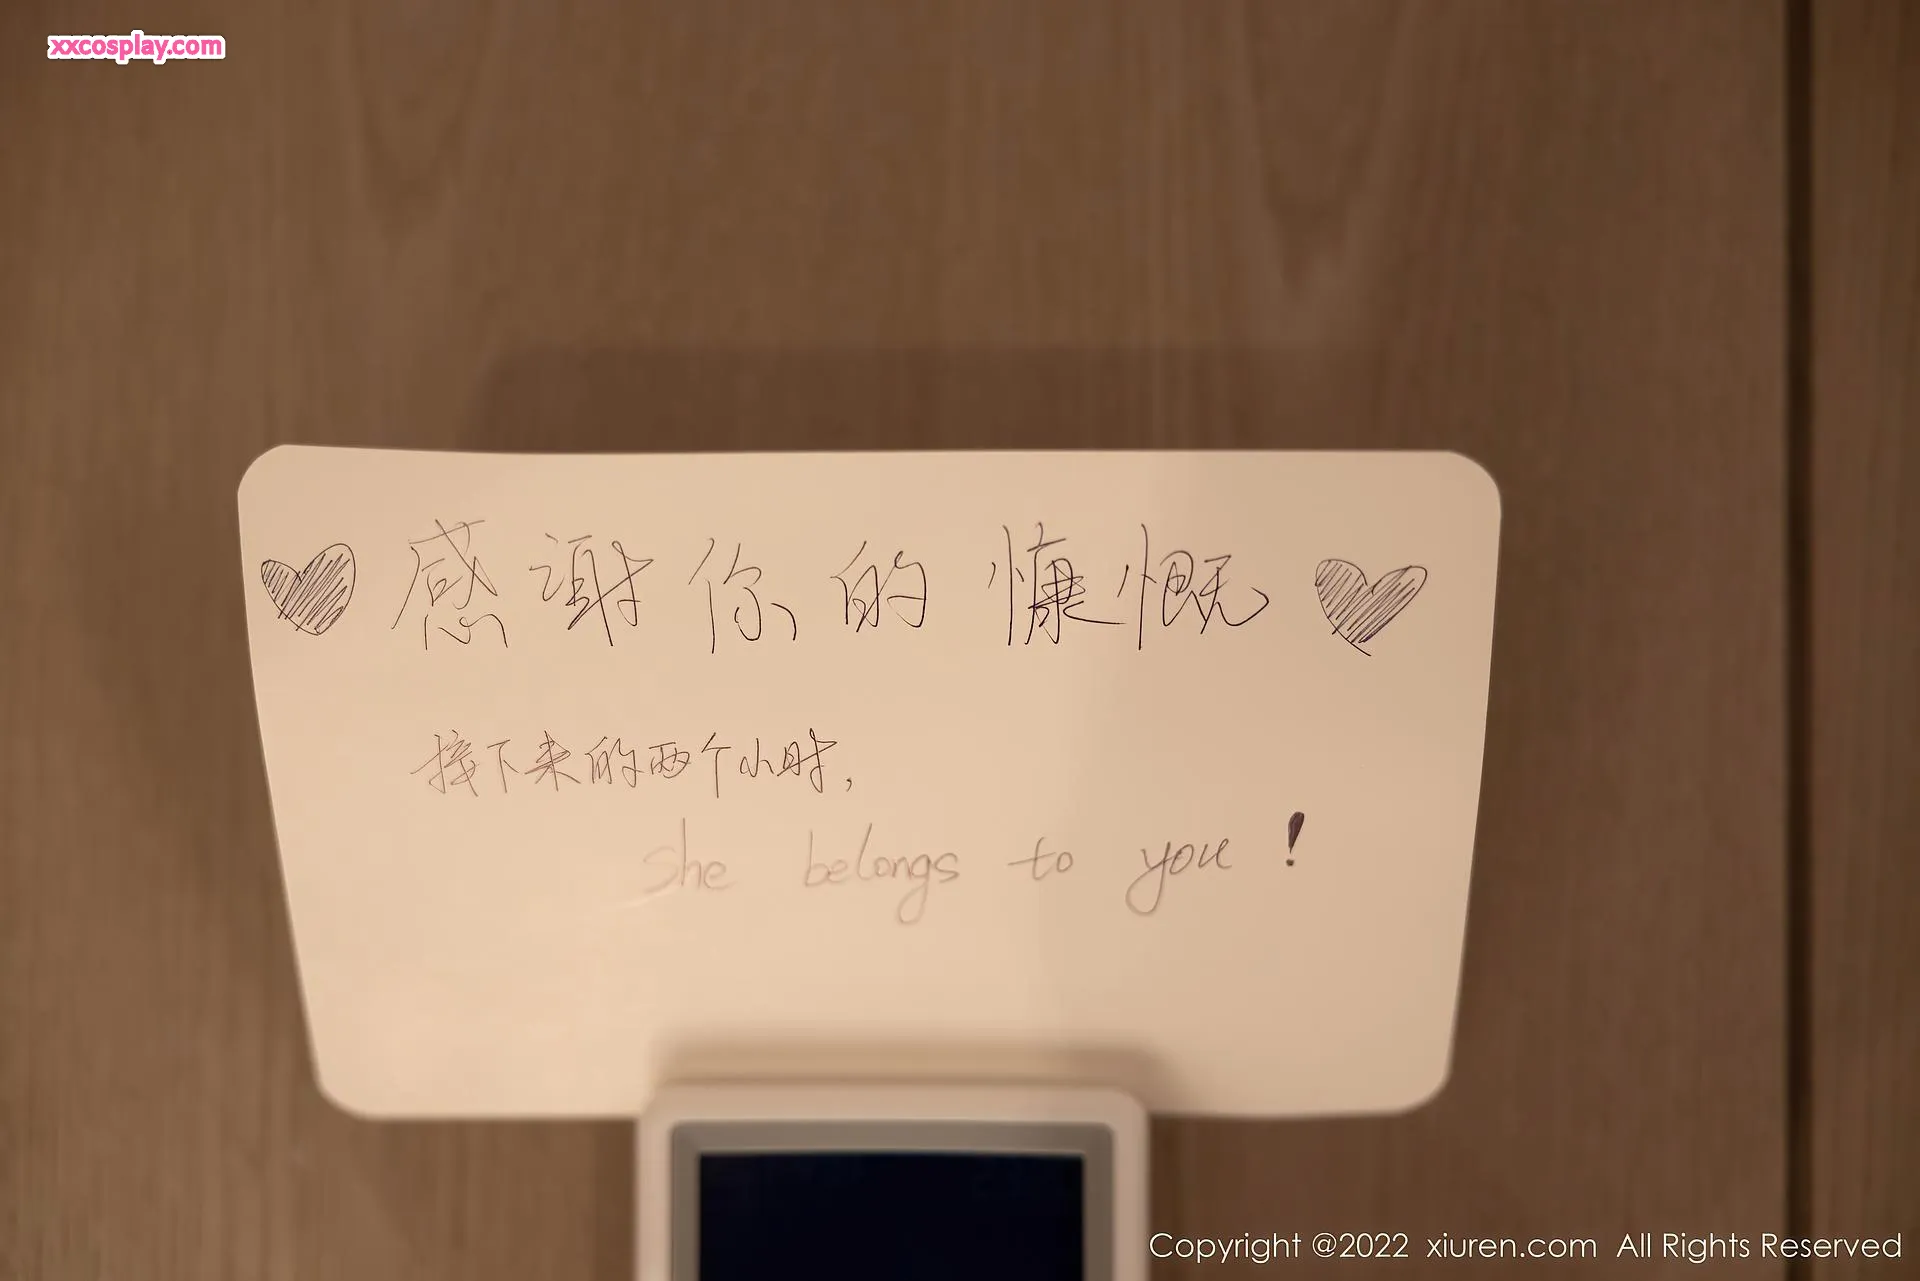 xxcosplay.com
感谢你的慷慨
接下来的两个小时,
she belongs to you!
Copyright @2022 xiuren.com All Rights Reserved